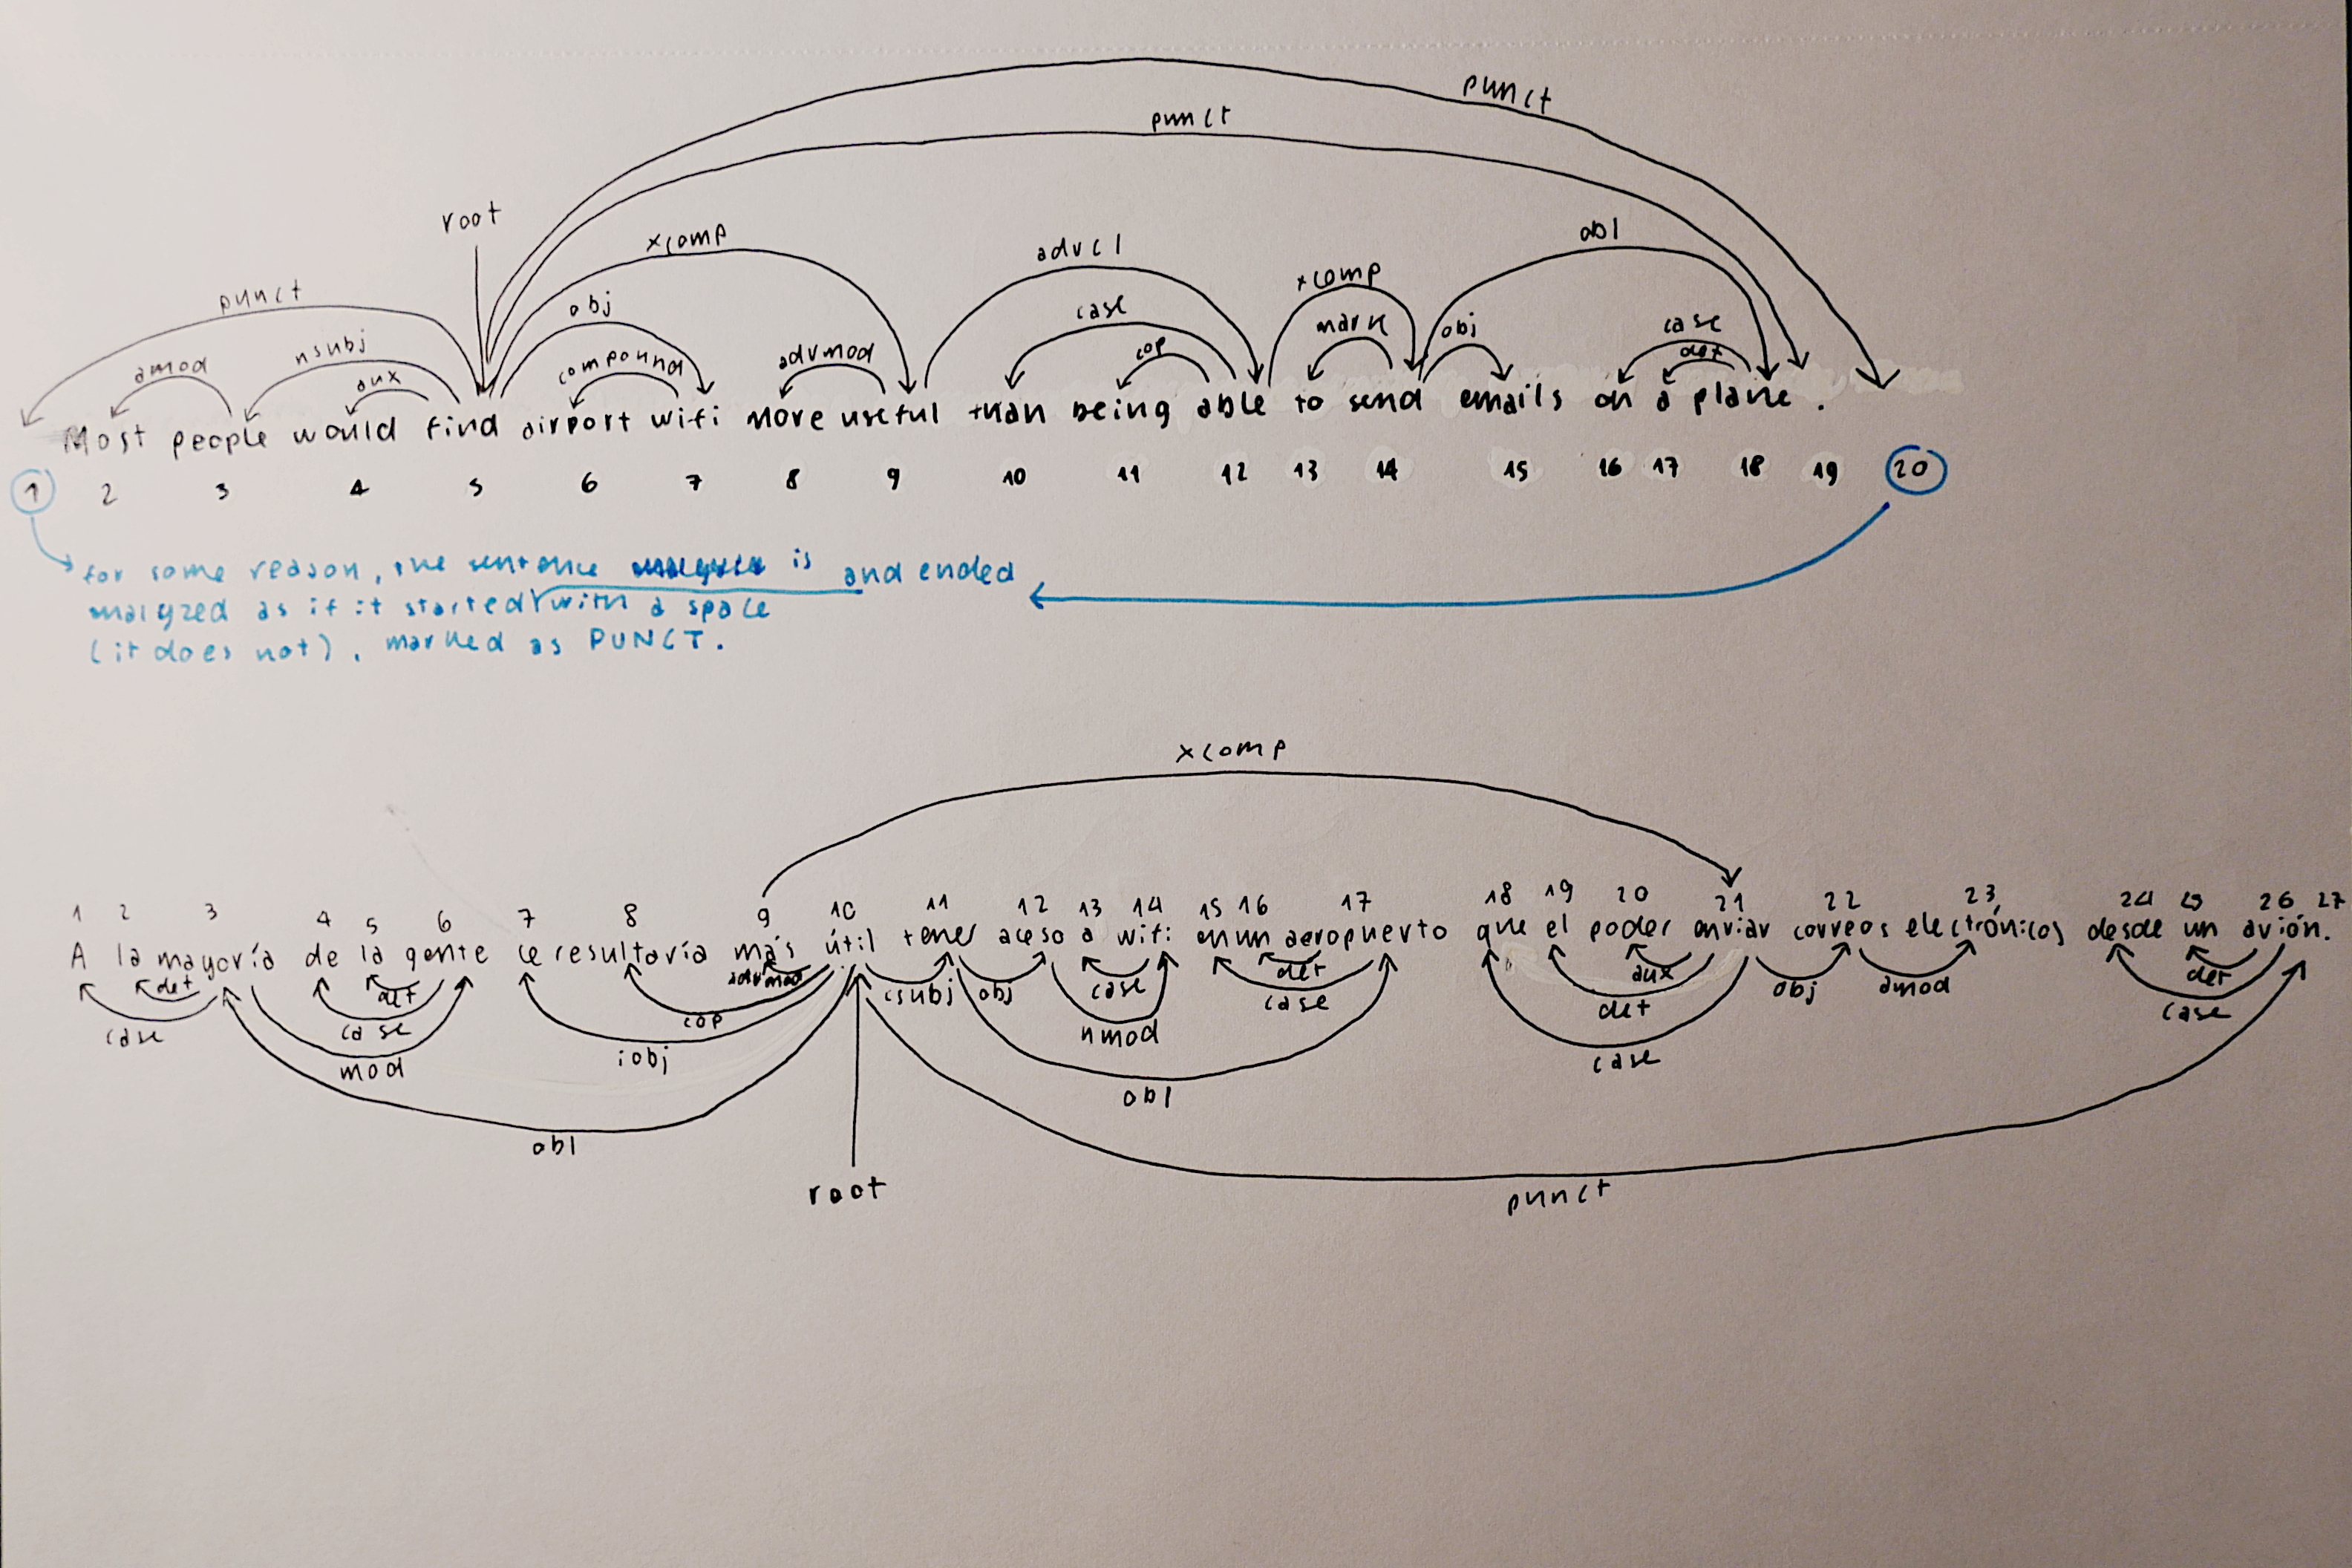 punct
punct
root
xcomp
advcl
obl
punct
obj
case
xcomp
amod
nsubj
aux
compound
advmod
cop
mark
obj
case
det
Most people would find airport wifi more useful than being able to send emails on a plane .
1 2 3 4 5 6 7 8 9 10 11 12 13 14 15 16 17 18 19 20
for some reason, the sentence is and ended
analyzed as if it started with a space
(it does not), marked as PUNCT.
xcomp
1 2 3 4 5 6 7 8 9 10 11 12 13 14 15 16 17 18 19 20 21 22 23 24 25 26 27
A la mayoría de la gente le resultaría más útil tener aceso a wifi en un aeropuerto que el poder enviar correos electrónicos desde un avión.
det det advmod csubj obj case det aux obj amod det
case case cop nmod case det case
mod iobj case
obl obl
root punct